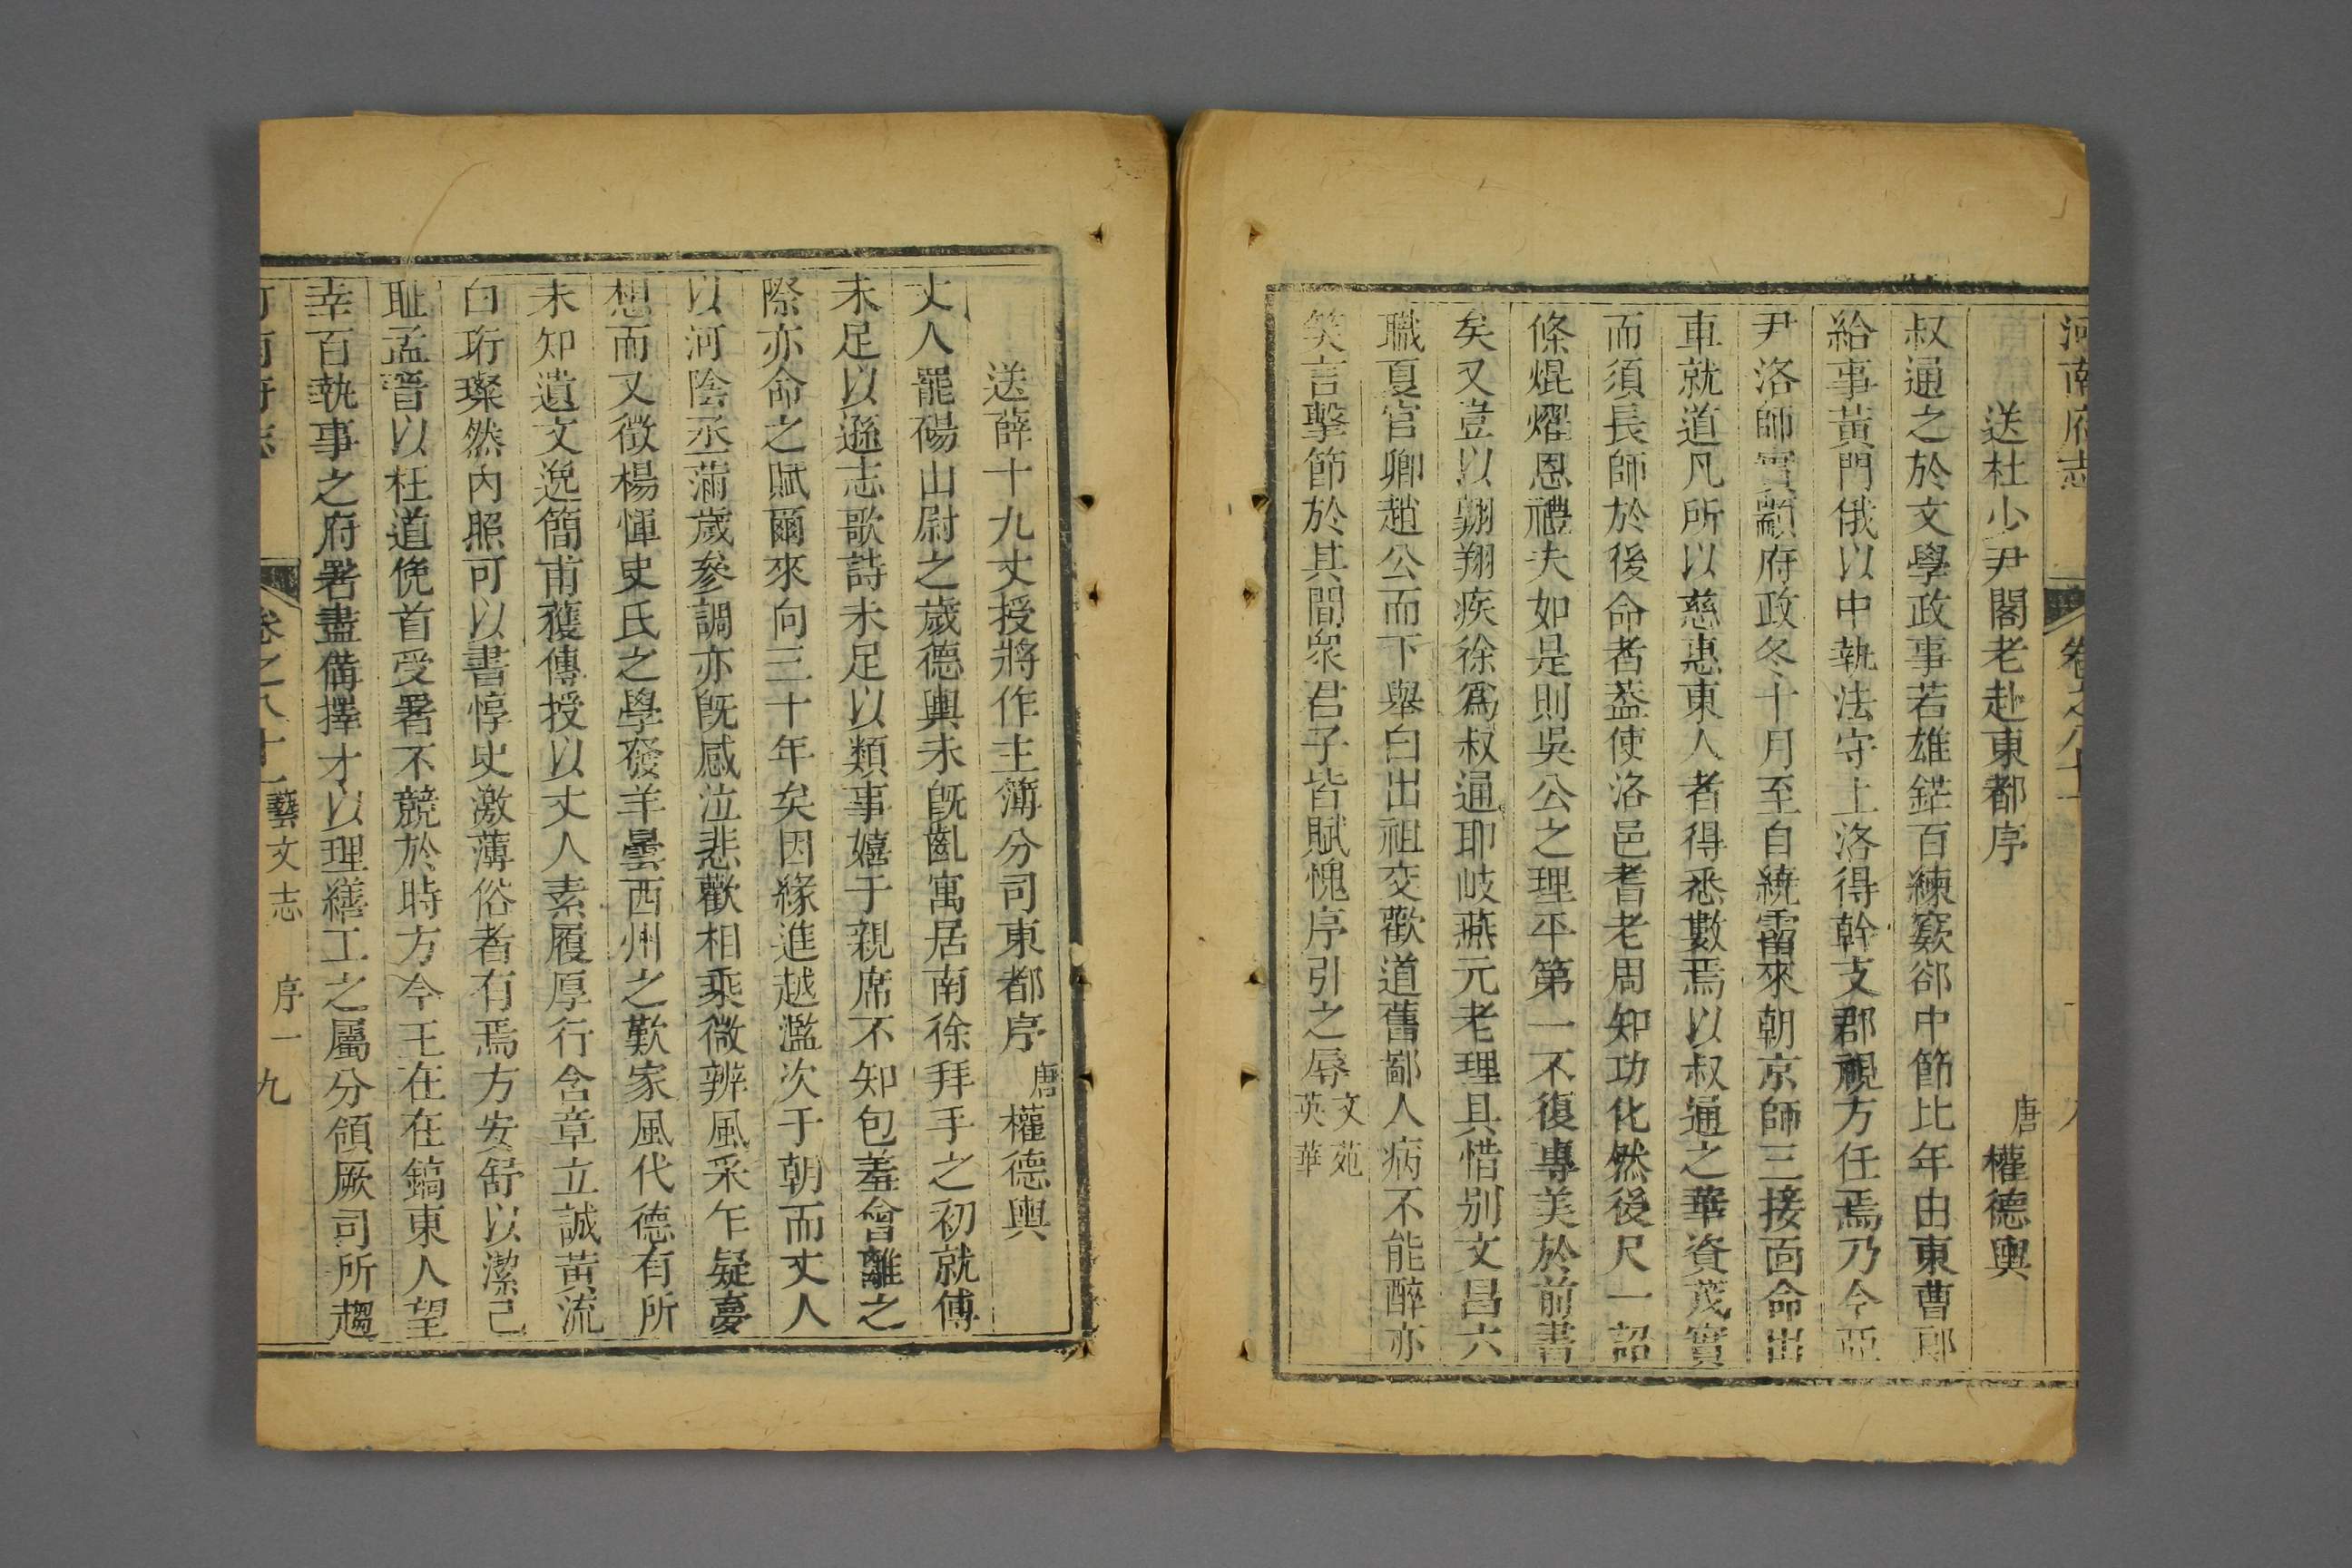 河南府志 卷之八十一
送杜少尹閣老赴東都序 唐 權德輿
叔通之於文學政事若雄鋩百練窾郤中節比年由東曹郎
給事黃門俄以中執法守上洛得幹支郡視方任焉乃今亞
尹洛師實顓府政冬十月至自繞霤來朝京師三接面命出
車就道凡所以慈惠東人者得悉數焉以叔通之華資茂實
而須長師於後命者葢使洛邑耆老周知功化然後尺一詔
條焜燿恩禮夫如是則吳公之理平第一不復專美於前書
矣又豈以翺翔疾徐爲叔通耶岐燕元老理具惜別文昌六
職夏官卿趙公而下舉白出祖交歡道舊鄙人病不能醉亦
笑言擊節於其間衆君子皆賦愧序引之辱 文苑
英華
送薛十九丈授將作主簿分司東都序 唐 權德輿
丈人罷碭山尉之歲德輿未旣齓寓居南徐拜手之初就傅
未足以遜志歌詩未足以類事嬉于親席不知包羞曾離之
際亦命之賦爾來向三十年矣因緣進越濫次于朝而丈人
以河陰丞滿歲參調亦旣感泣悲歡相乘微辨風采乍疑夢
想而又徵楊惲史氏之學發羊曇西州之歎家風代德有所
未知遺文逸簡甫獲傳授以丈人素履厚行含章立誠黃流
白珩璨然內照可以書惇史激薄俗者有焉方安舒以潔己
耻孟晉以枉道俛首受署不競於時方今王在在鎬東人望
幸百執事之府署盡備擇才以理繕工之屬分領厥司所趨
卷之八十一 藝文志 序一 九